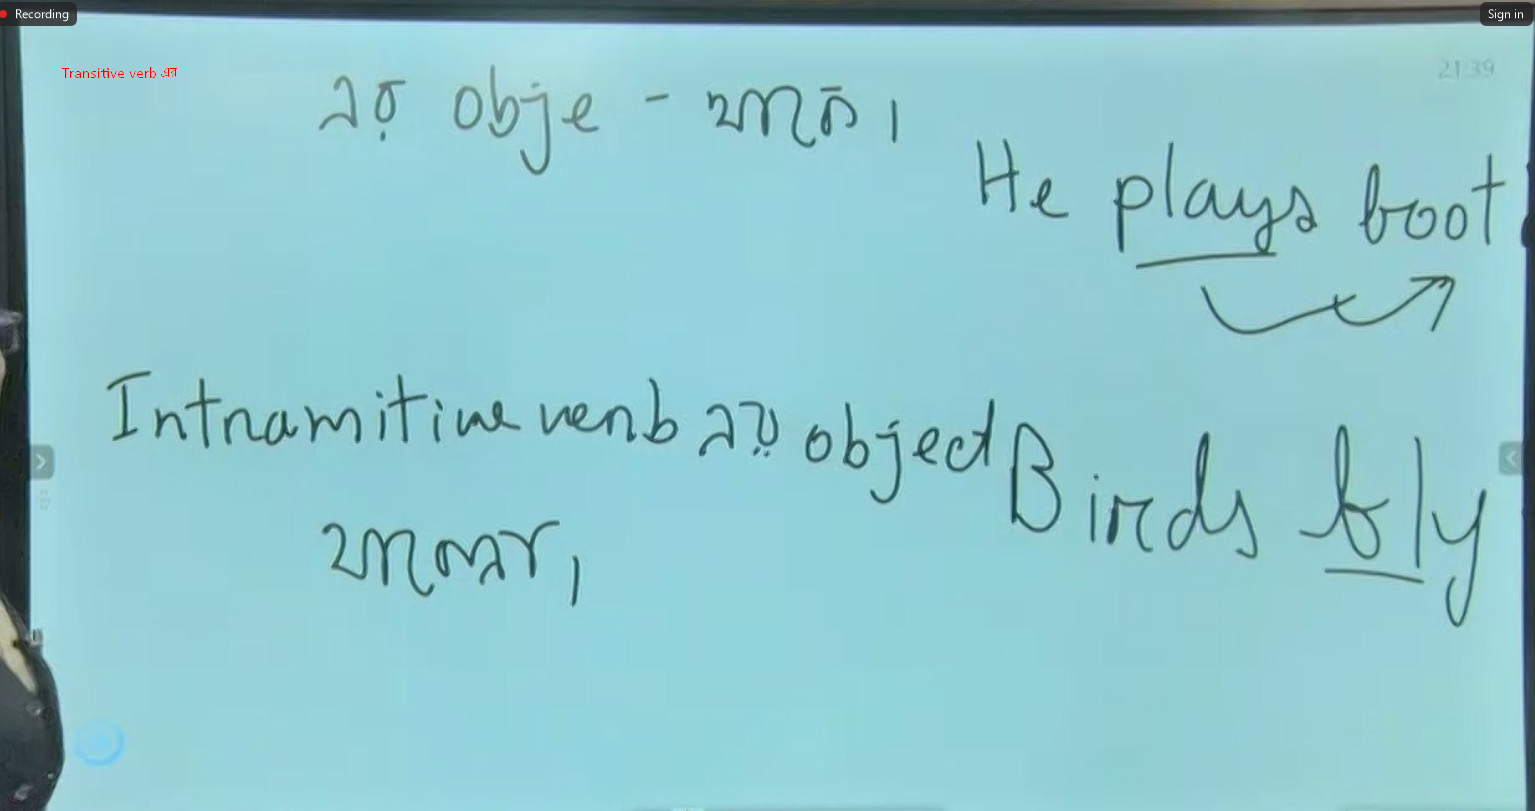 Recording
Sign in
Transitive verb এর
21:39
এর obje - থাকে।
He plays boot
Intransitive verb এর object
থাকেনা।
Birds fly